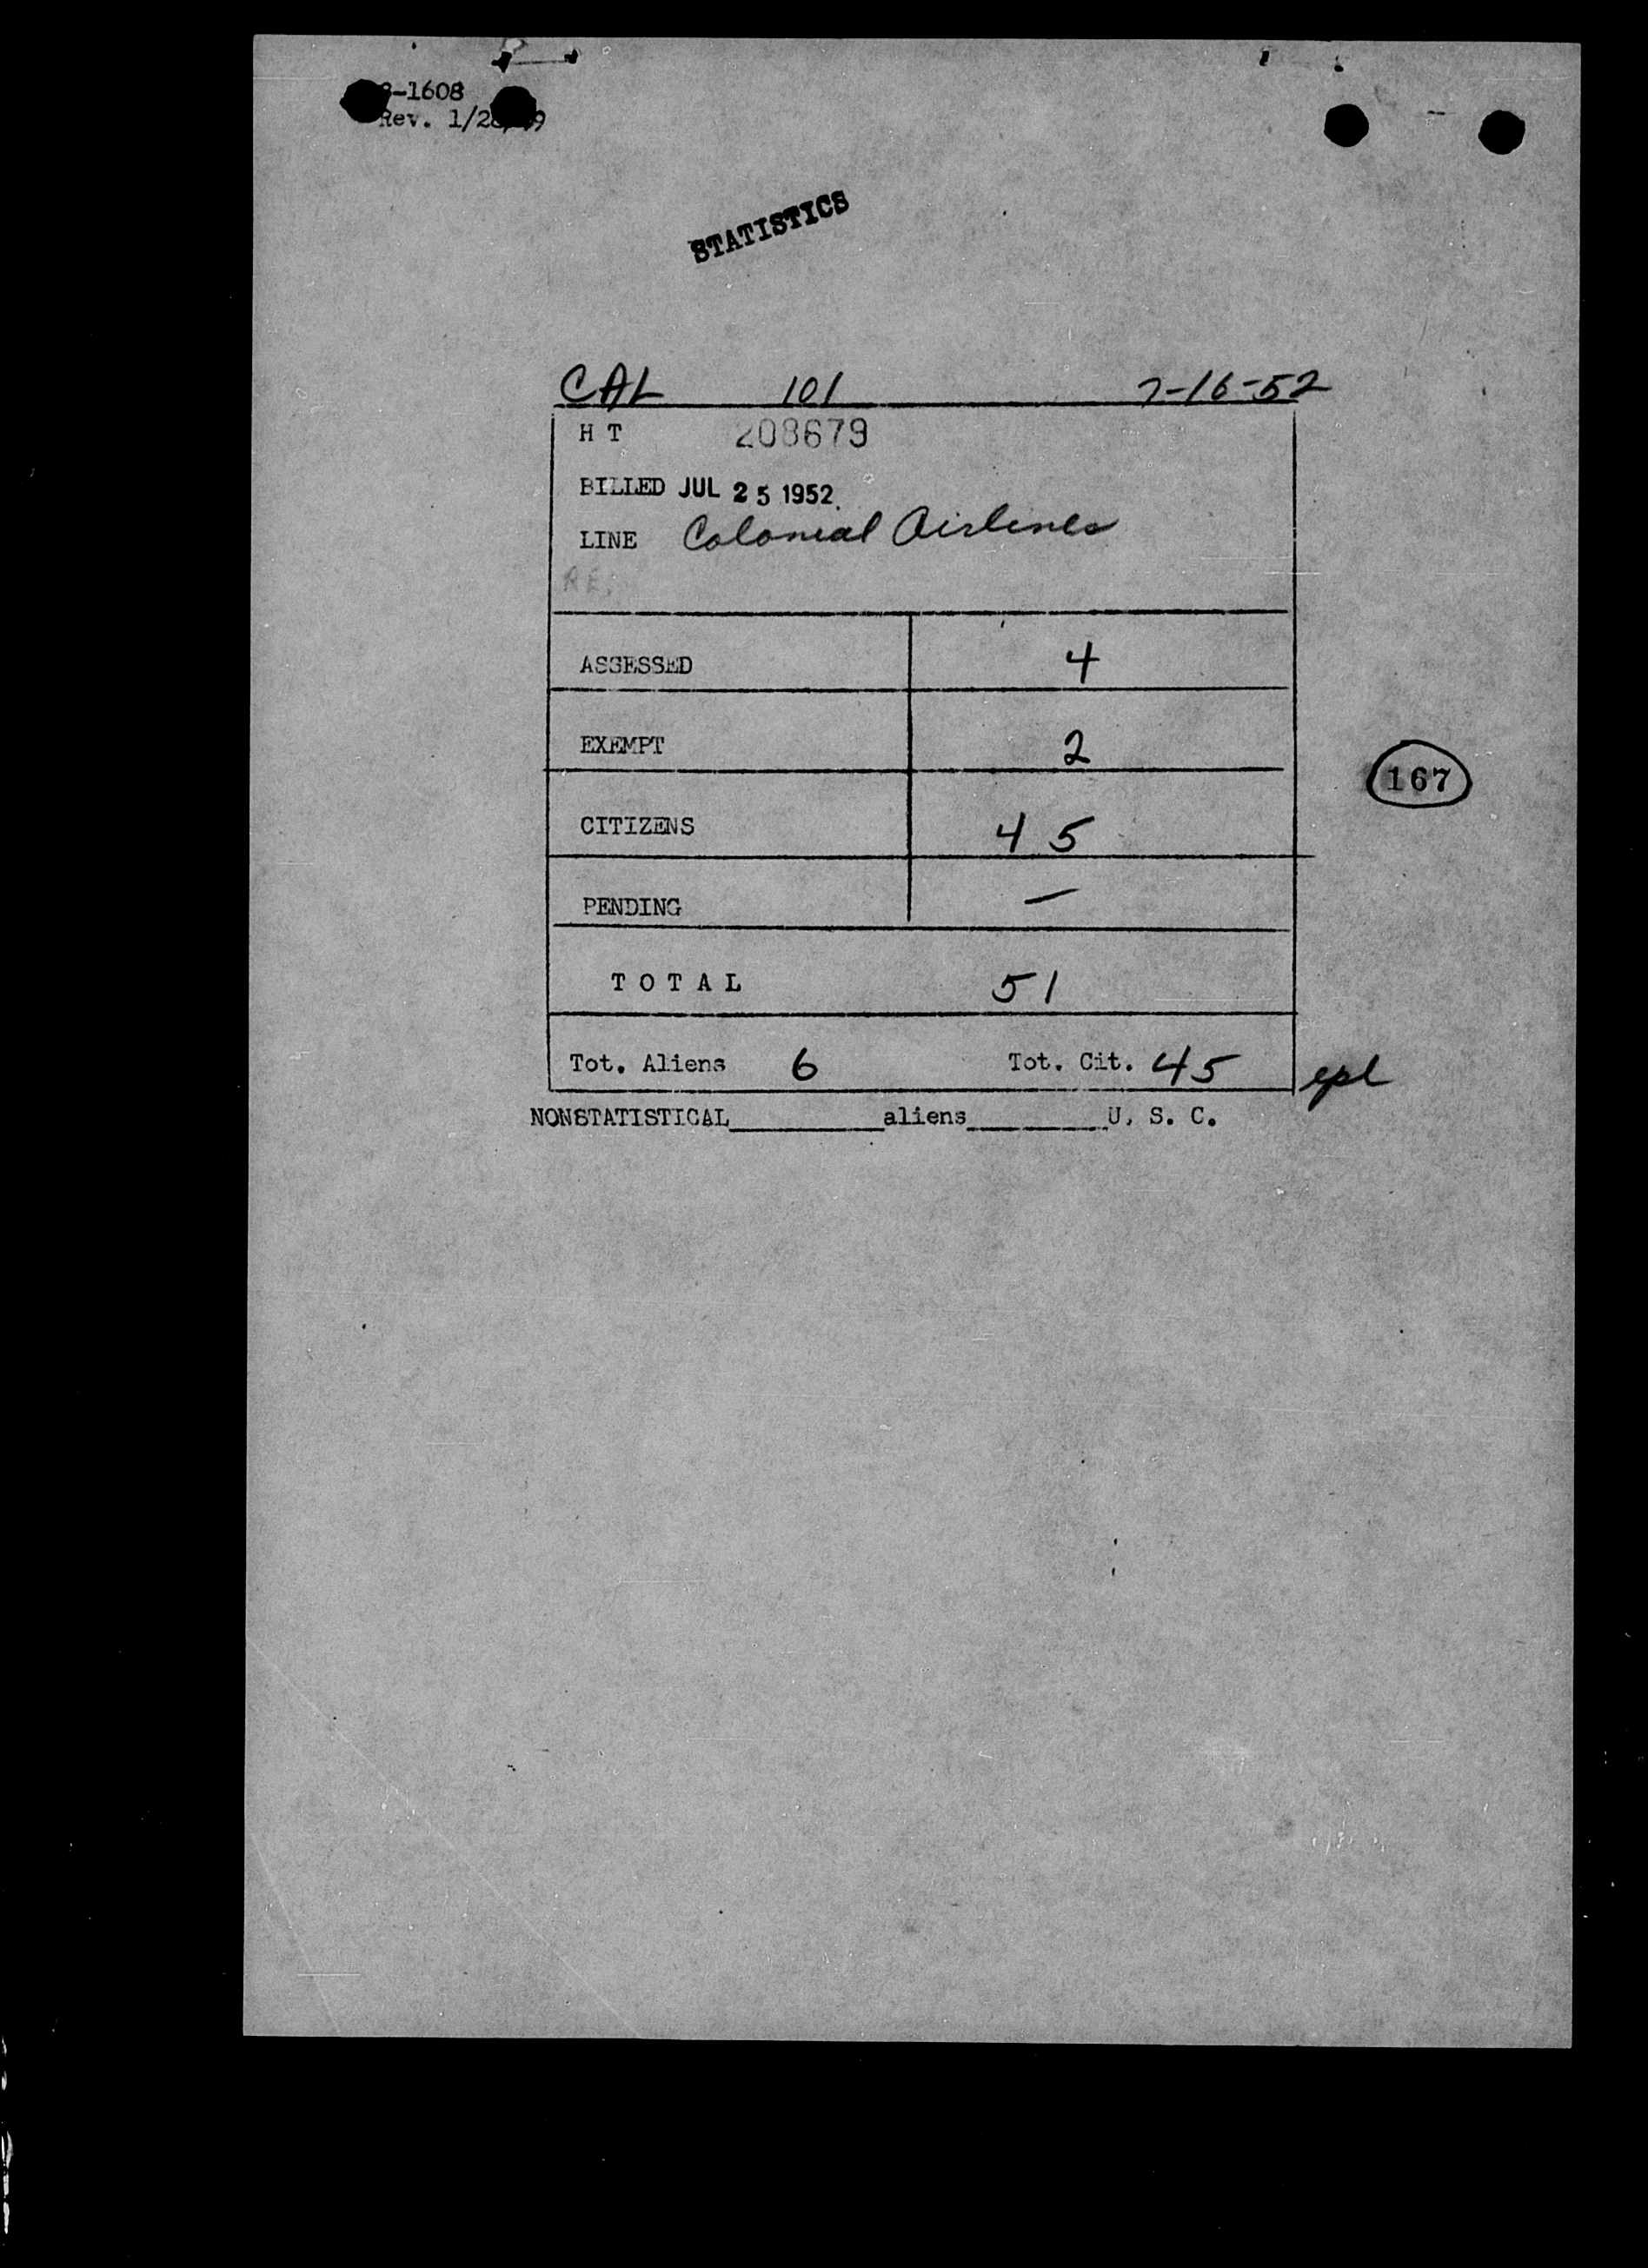 -1608
Rev. 1/2
STATISTICS
CAL 101 7-16-52
H T 208679
BILLED JUL 25 1952
LINE Colonial Airlines
RE.
ASSESSED 4
EXEMPT 2
167
CITIZENS 45
PENDING —
TOTAL 51
Tot. Aliens 6 Tot. Cit. 45
NONSTATISTICAL__________aliens_________U. S. C.